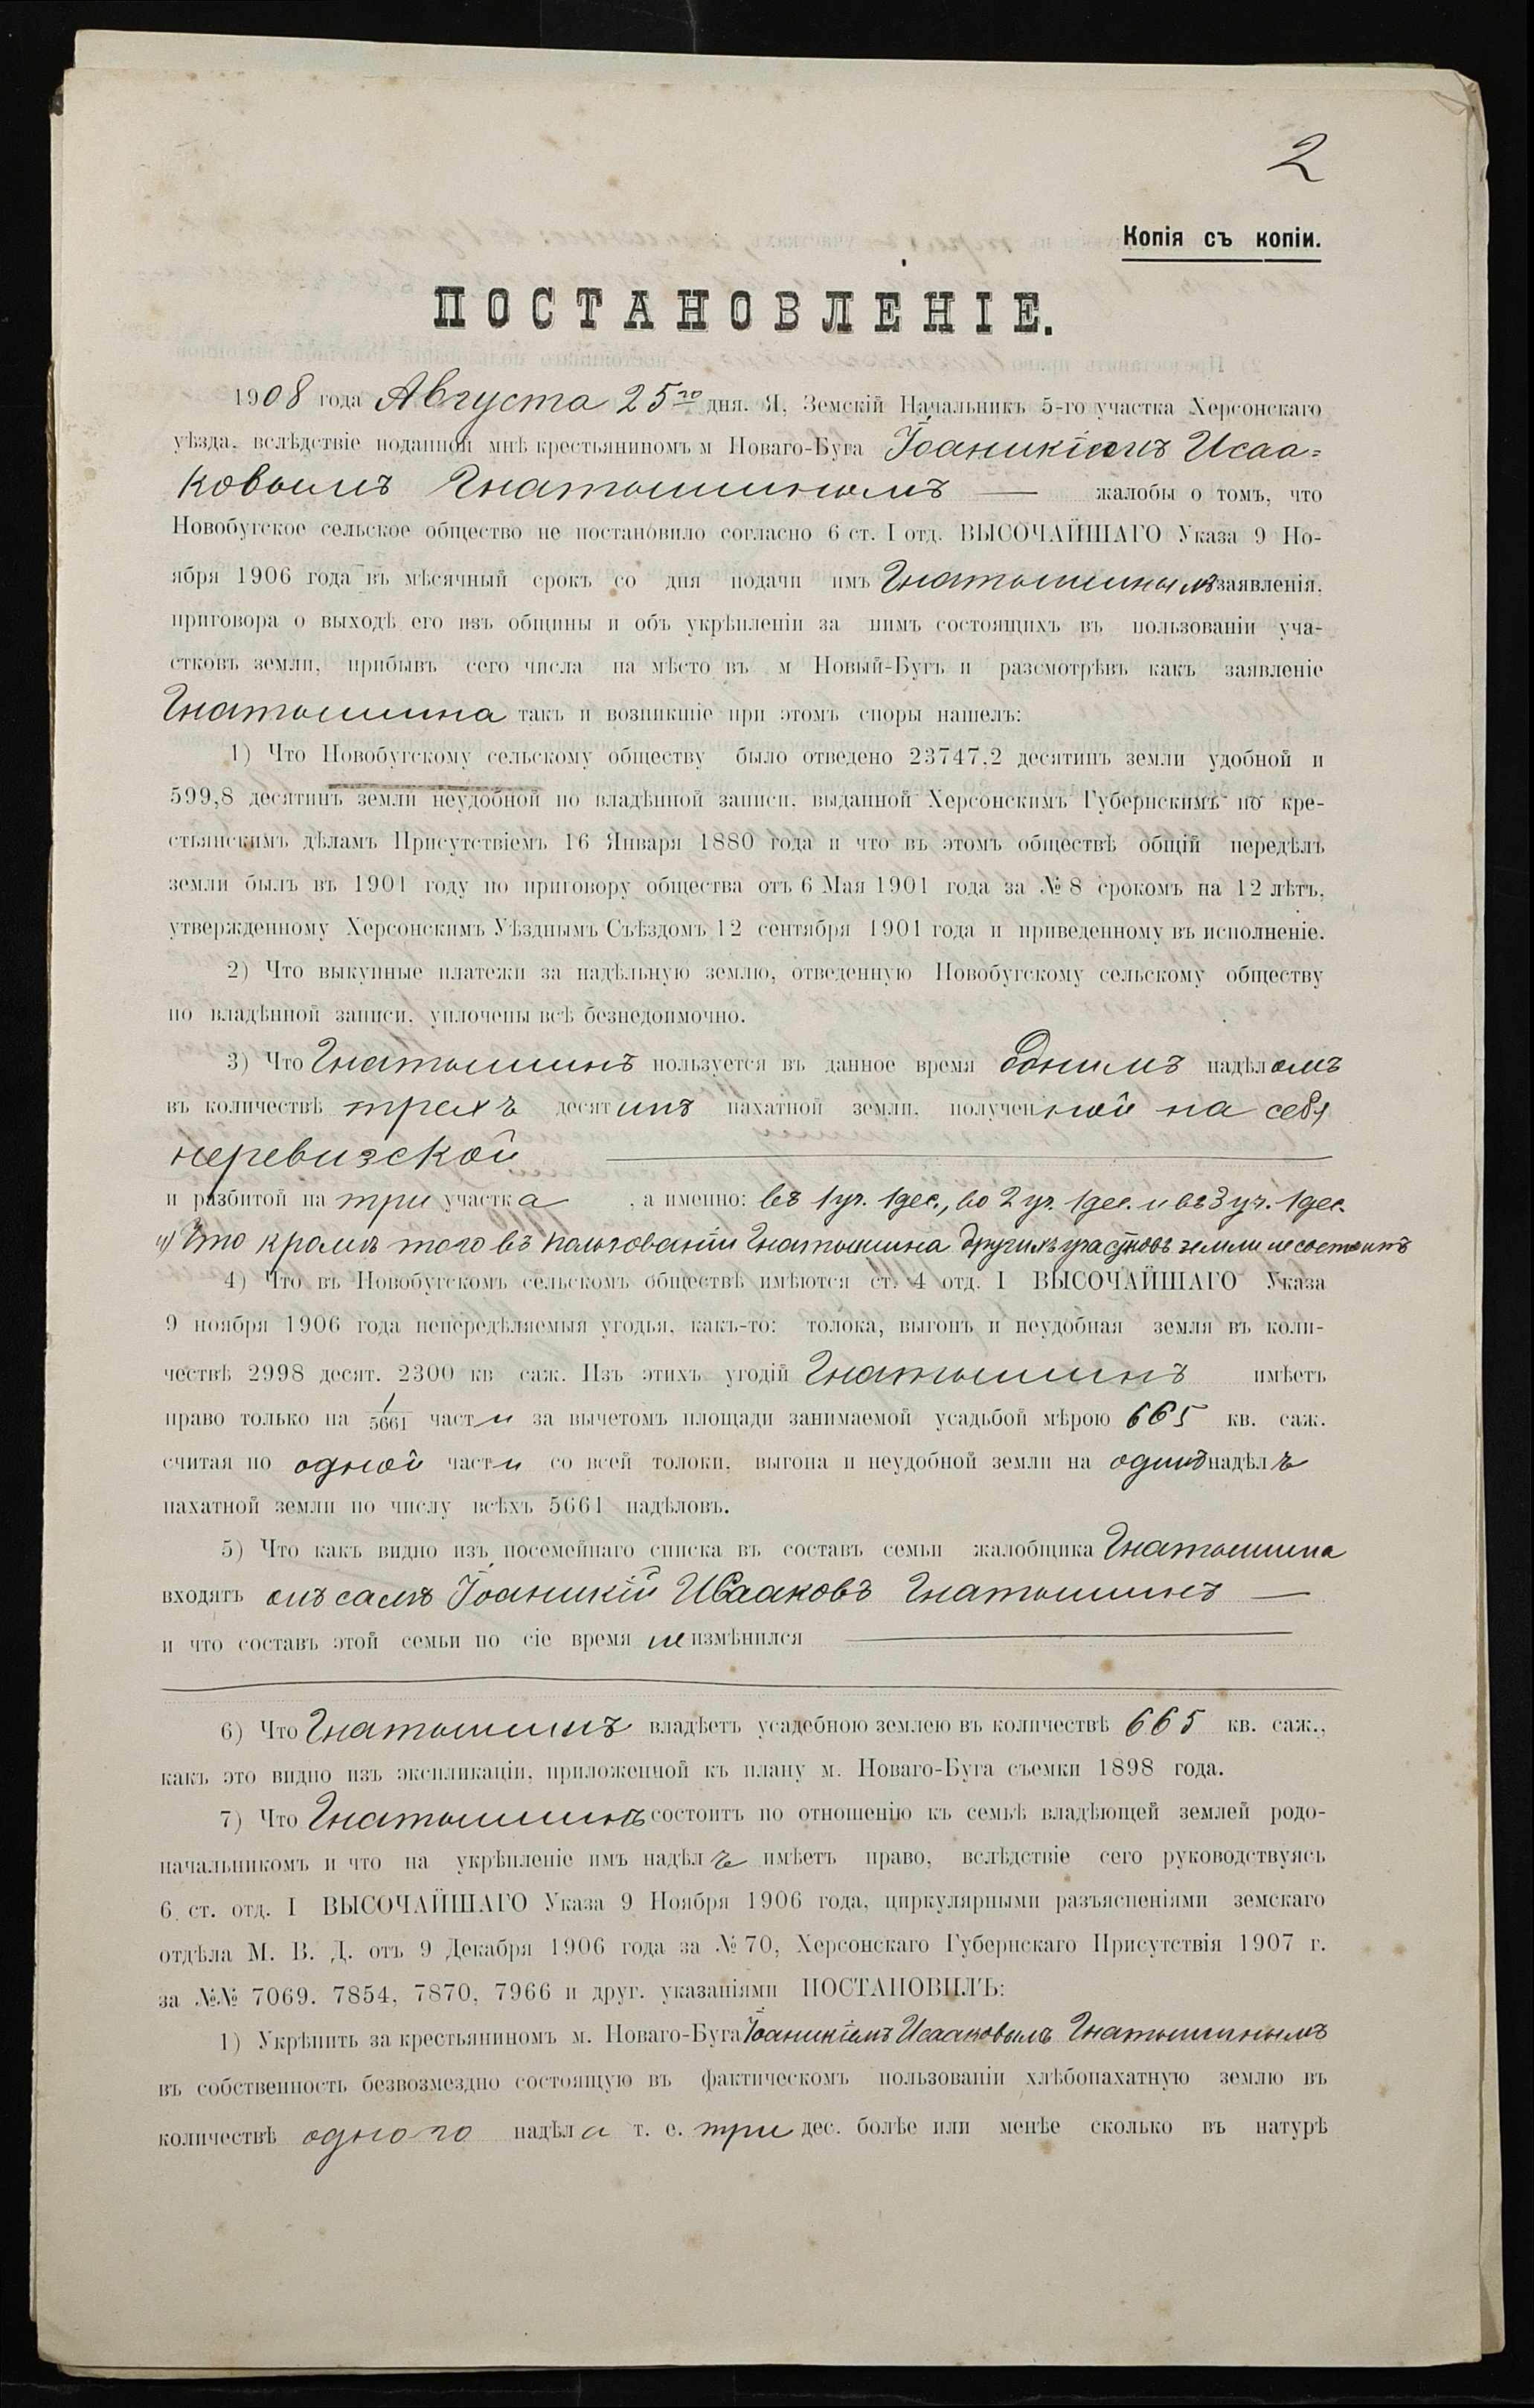 2
Копія съ копіи.
ПОСТАНОВЛЕНІЕ.
1908 года Августа 25го дня. Я, Земскій Начальникъ 5-го участка Херсонскаго
уѣзда, вслѣдствіе поданной мнѣ крестьяниномъ м Новаго-Буга Іоаникіемъ Исаа=
ковымъ Гнатышинымъ — жалобы о томъ, что
Новобугское сельское общество не постановило согласно 6 ст. I отд. ВЫСОЧАЙШАГО Указа 9 Но-
ября 1906 года въ мѣсячный срокъ со дня подачи имъ Гнатышинымъ заявленія,
приговора о выходѣ его изъ общины и объ укрѣпленіи за нимъ состоящихъ въ пользованіи уча-
стковъ земли, прибывъ сего числа на мѣсто въ м Новый-Бугъ и разсмотрѣвъ какъ заявленіе
Гнатышина такъ и возникшіе при этомъ споры нашелъ:
1) Что Новобугскому сельскому обществу было отведено 23747,2 десятинъ земли удобной и
599,8 десятинъ земли неудобной по владѣнной записи, выданной Херсонскимъ Губернскимъ по кре-
стьянскимъ дѣламъ Присутствіемъ 16 Января 1880 года и что въ этомъ обществѣ общій передѣлъ
земли былъ въ 1901 году по приговору общества отъ 6 Мая 1901 года за № 8 срокомъ на 12 лѣтъ,
утвержденному Херсонскимъ Уѣзднымъ Съѣздомъ 12 сентября 1901 года и приведенному въ исполненіе.
2) Что выкупные платежи за надѣльную землю, отведенную Новобугскому сельскому обществу
по владѣнной записи, уплочены всѣ безнедоимочно.
3) Что Гнатышинъ пользуется въ данное время однимъ надѣломъ
въ количествѣ трехъ десятинъ пахатной земли, полученной на себя
неревизской
и разбитой на три участка , а именно: въ 1 уч. 1 дес., во 2 уч. 1 дес. и въ 3 уч. 1 дес.
и) Что кромѣ того въ пользованіи Гнатышина другихъ участковъ земли не состоитъ
4) Что въ Новобугскомъ сельскомъ обществѣ имѣются ст. 4 отд. I ВЫСОЧАЙШАГО Указа
9 ноября 1906 года непередѣляемыя угодья, какъ-то: толока, выгонъ и неудобная земля въ коли-
чествѣ 2998 десят. 2300 кв саж. Изъ этихъ угодій Гнатышинъ имѣетъ
право только на 1/5661 части за вычетомъ площади занимаемой усадьбой мѣрою 665 кв. саж.
считая по одной части со всей толоки, выгона и неудобной земли на одинъ надѣлъ
пахатной земли по числу всѣхъ 5661 надѣловъ.
5) Что какъ видно изъ посемейнаго списка въ составъ семьи жалобщика Гнатышина
входятъ онъ самъ Іоаникій Исааковъ Гнатышинъ —
и что составъ этой семьи по сіе время не измѣнился
6) Что Гнатышинъ владѣетъ усадебною землею въ количествѣ 665 кв. саж.,
какъ это видно изъ экспликаціи, приложенной къ плану м. Новаго-Буга съемки 1898 года.
7) Что Гнатышинъ состоитъ по отношенію къ семьѣ владѣющей землей родо-
начальникомъ и что на укрѣпленіе имъ надѣлъ имѣетъ право, вслѣдствіе сего руководствуясь
6. ст. отд. I ВЫСОЧАЙШАГО Указа 9 Ноября 1906 года, циркулярными разъясненіями земскаго
отдѣла М. В. Д. отъ 9 Декабря 1906 года за № 70, Херсонскаго Губернскаго Присутствія 1907 г.
за №№ 7069. 7854, 7870, 7966 и друг. указаніями ПОСТАНОВИЛЪ:
1) Укрѣпить за крестьяниномъ м. Новаго-Буга Іоаникіемъ Исааковымъ Гнатышинымъ
въ собственность безвозмездно состоящую въ фактическомъ пользованіи хлѣбопахатную землю въ
количествѣ одного надѣла т. е. три дес. болѣе или менѣе сколько въ натурѣ